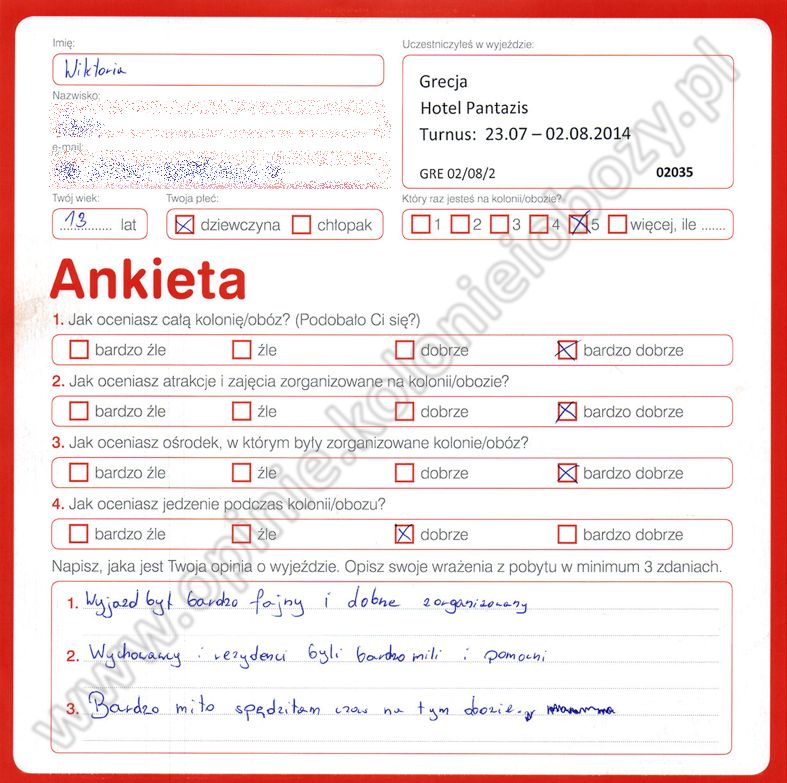 Imię:
Uczestniczyłeś w wyjeździe:
Wiktoria
Grecja
Hotel Pantazis
Turnus: 23.07 – 02.08.2014
GRE 02/08/2 02035
Nazwisko:
e-mail:
Twój wiek: Twoja płeć: Który raz jesteś na kolonii/obozie?
13 lat dziewczyna chłopak 1 2 3 4 5 więcej, ile .......
Ankieta
1. Jak oceniasz całą kolonię/obóz? (Podobało Ci się?)
bardzo źle źle dobrze bardzo dobrze
2. Jak oceniasz atrakcje i zajęcia zorganizowane na kolonii/obozie?
bardzo źle źle dobrze bardzo dobrze
3. Jak oceniasz ośrodek, w którym były zorganizowane kolonie/obóz?
bardzo źle źle dobrze bardzo dobrze
4. Jak oceniasz jedzenie podczas kolonii/obozu?
bardzo źle źle dobrze bardzo dobrze
Napisz, jaka jest Twoja opinia o wyjeździe. Opisz swoje wrażenia z pobytu w minimum 3 zdaniach.
1. Wyjazd był bardzo fajny i dobrze zorganizowany
2. Wychowawcy i rezydenci byli bardzo mili i pomocni
3. Bardzo miło spędziłam czas na tym obozie.
www.opinie.kolonieiobozy.pl